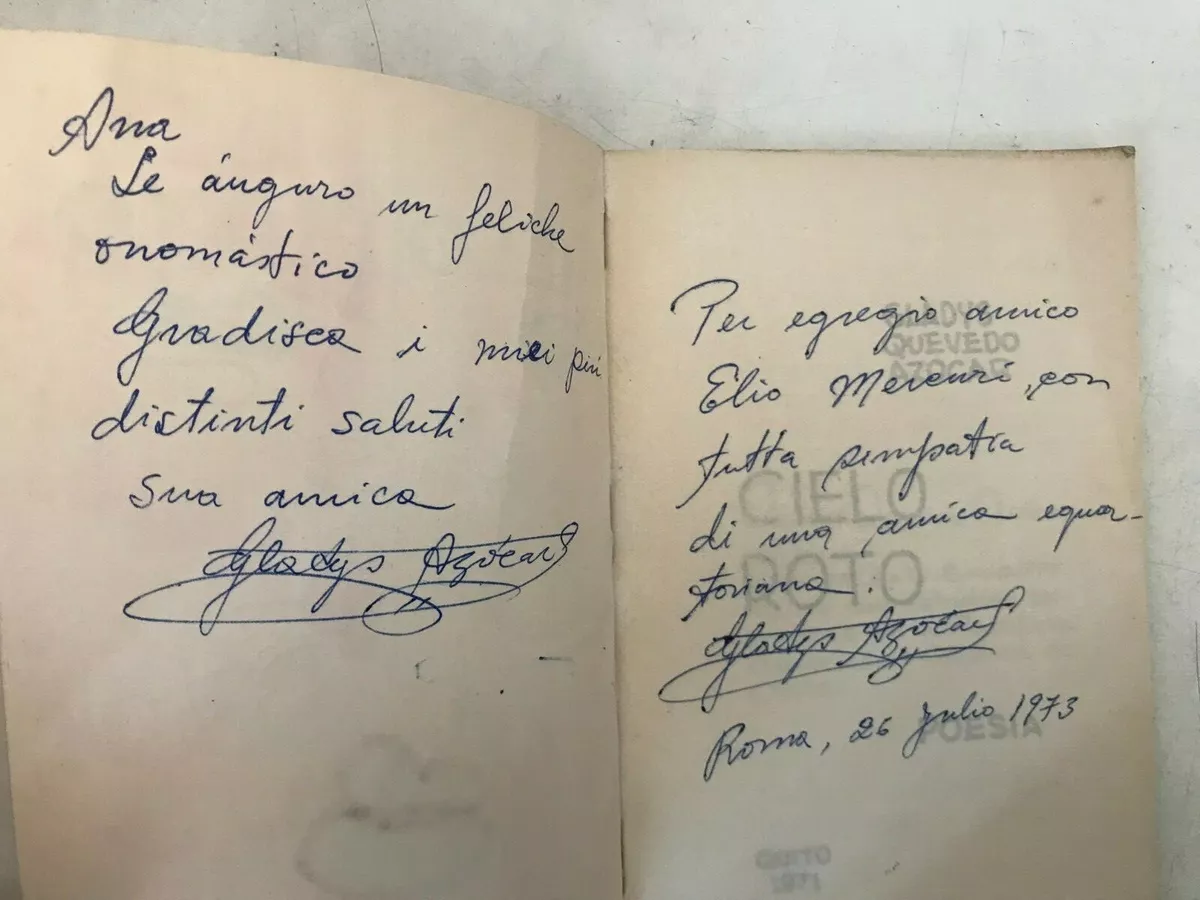 Ana
Le áuguro un feliche
onomástico
Gradisca i miei più
distinti saluti
sua amica
Gladys Azócar
Per egregio amico
Elio Mercuri, con
tutta simpatia
di una amica equa-
toriana.
Gladys Azócar
Roma, 26 julio 1973
GLADYS
QUEVEDO
AZOCAR
CIELO
ROTO
POESIA
QUITO
1971